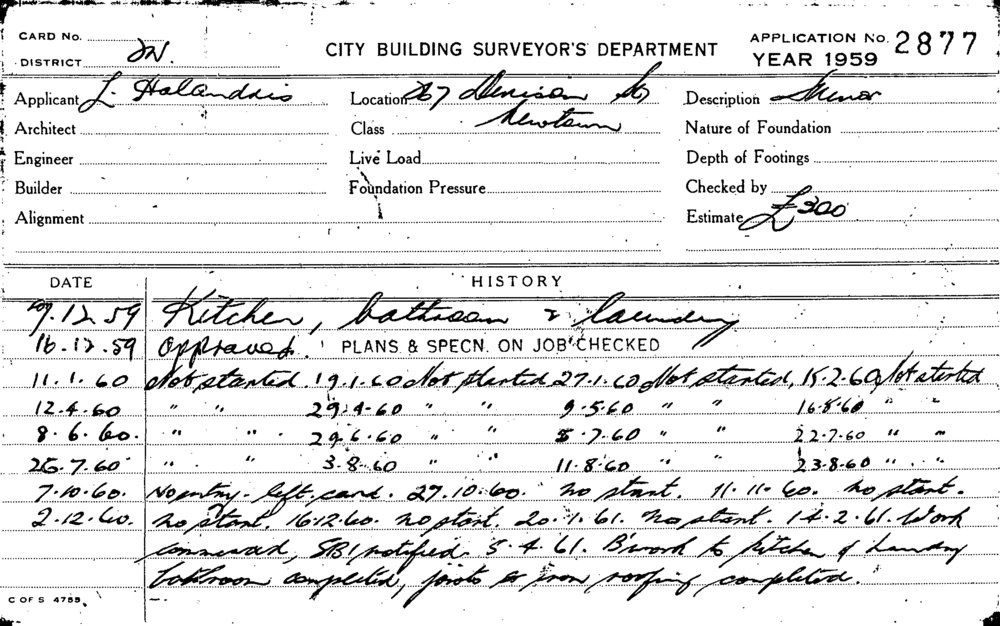 CARD No.
DISTRICT W.
CITY BUILDING SURVEYOR'S DEPARTMENT
APPLICATION No. 2877
YEAR 1959
Applicant L. Halandris
Location 267 Denison St
Newtown
Description Minor
Architect
Class
Nature of Foundation
Engineer
Live Load
Depth of Footings
Builder
Foundation Pressure
Checked by
Alignment
Estimate £300
DATE HISTORY
9.12.59 Kitchen, bathroom & laundry
16.12.59 Approved. PLANS & SPECN. ON JOB CHECKED
11.1.60 Not started. 19.1.60 Not started 27.1.60 Not started, 15.2.60 Not started
12.4.60 " " 29.4.60 " " 9.5.60 " " 16.5.60 " "
8.6.60. " " 29.6.60 " " 5.7.60 " " 22.7.60 " "
26.7.60 " " 3.8.60 " " 11.8.60 " " 23.8.60 " "
7.10.60. No entry - left card. 27.10.60. no start. 11.11.60. no start.
2.12.60. no start. 16.12.60. no start. 20.1.61. no start. 14.2.61. Work
commenced, SBI notified. 5.4.61. B'work to kitchen & laundry
bathroom completed, joists & iron roofing completed.
C OF S 4755